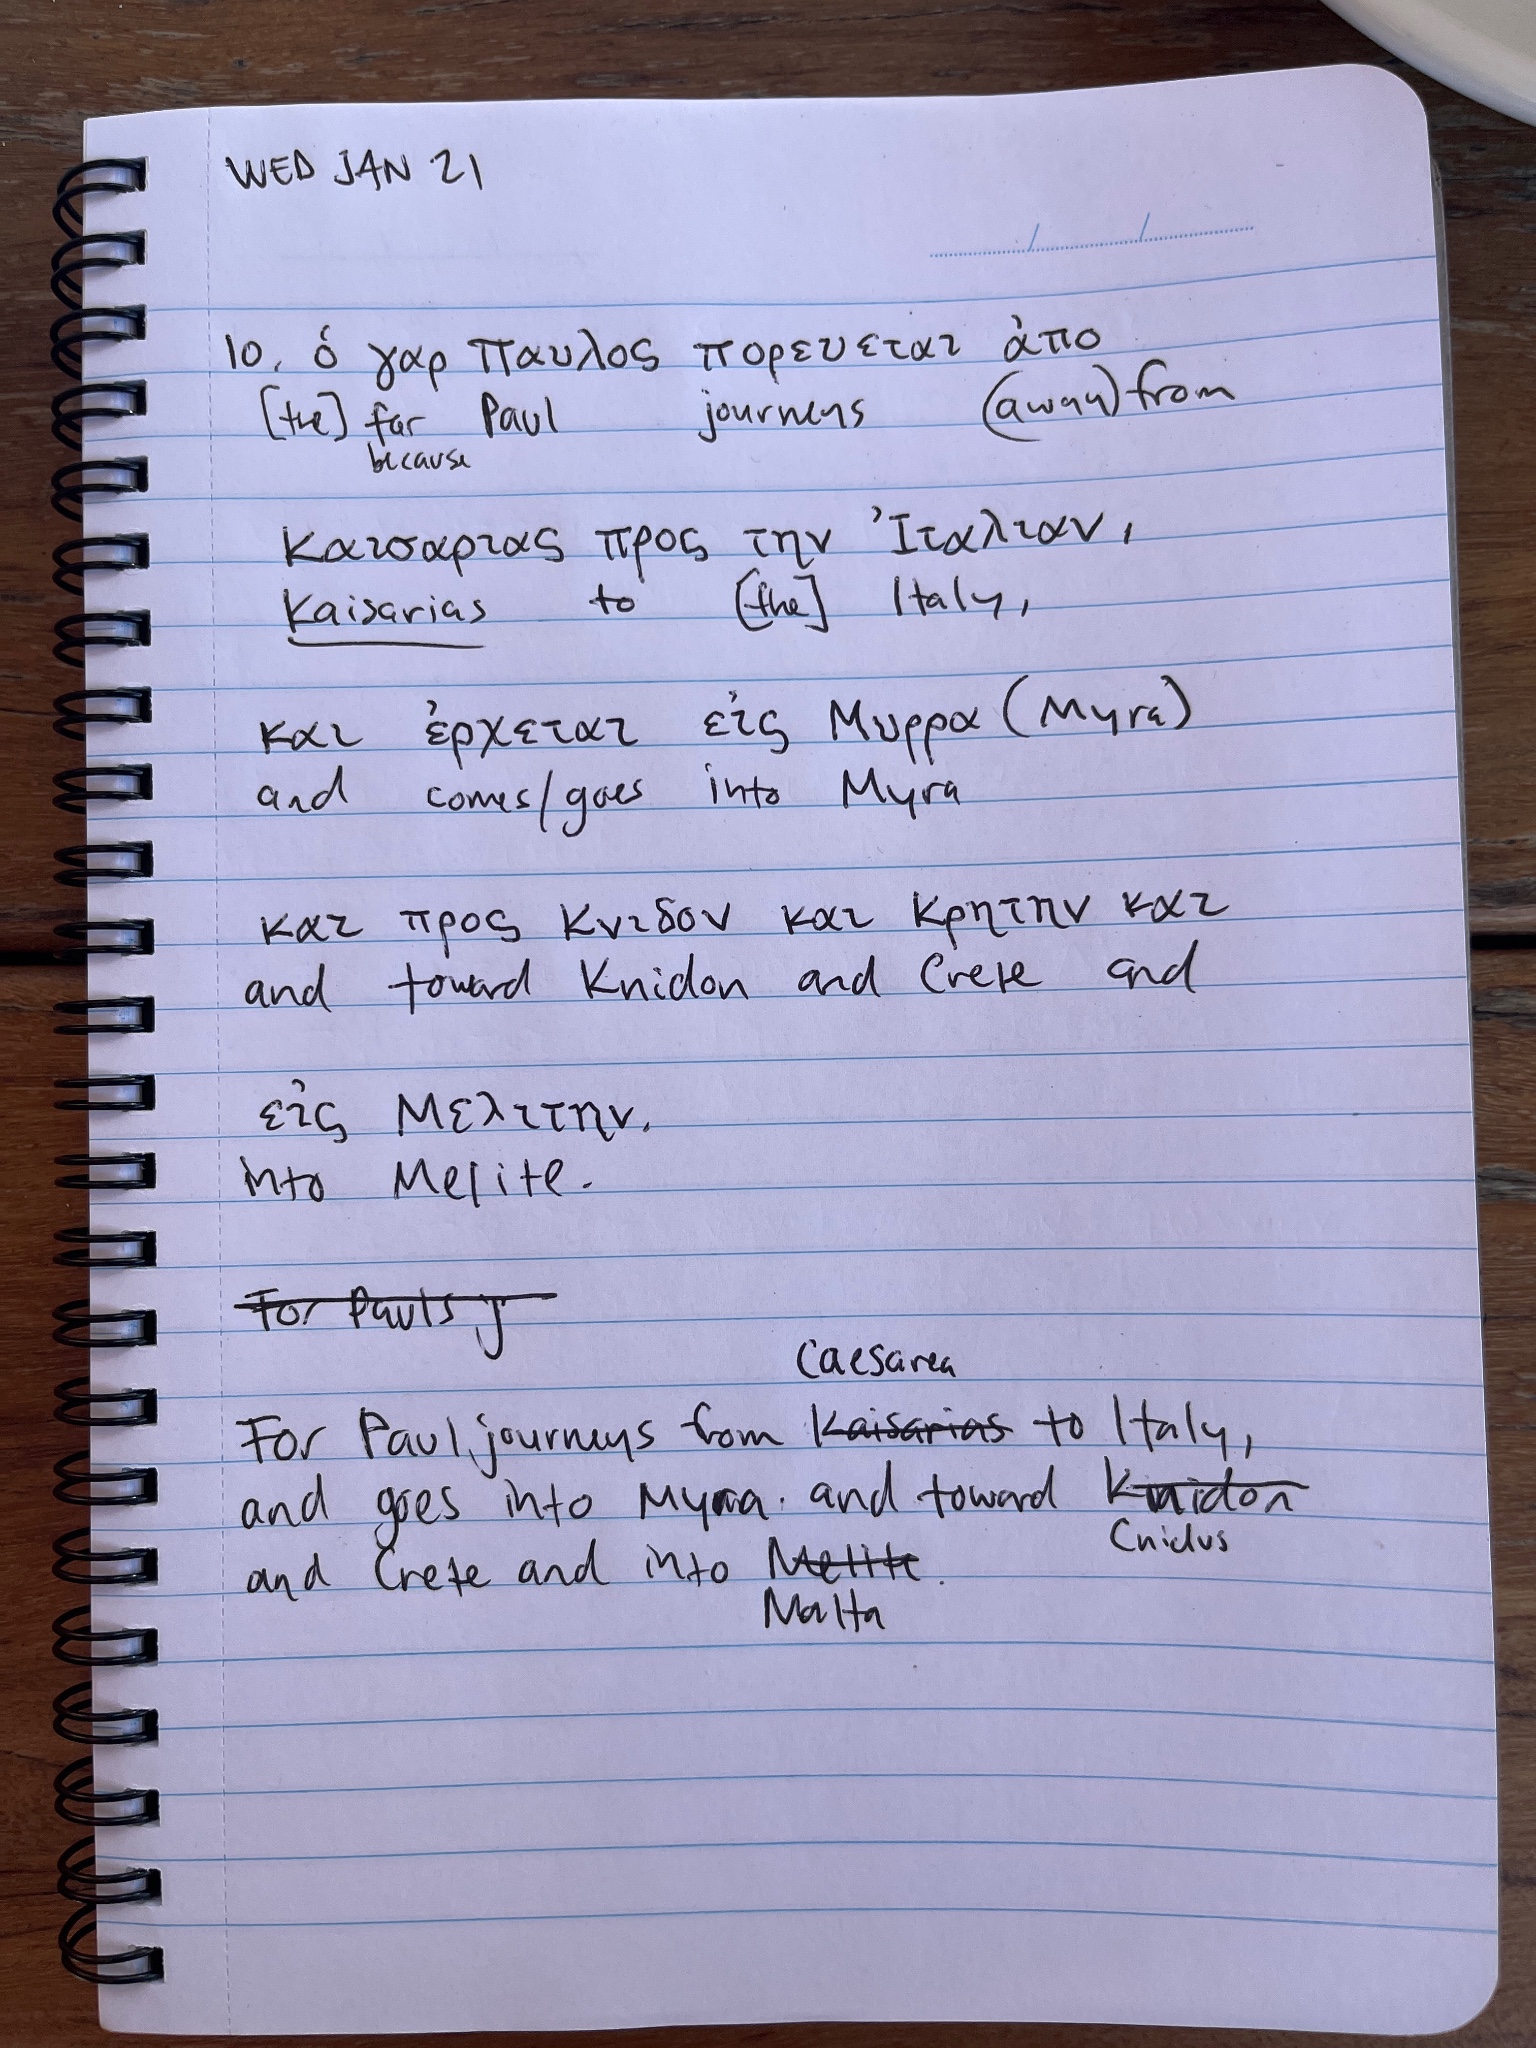 WED JAN 21
10. ὁ γαρ Παυλος πορευεται ἀπο
[the] for Paul journeys (away) from
because
Καισαριας προς την Ἰταλιαν,
Kaisarias to [the] Italy,
και ἐρχεται εἰς Μυρρα (Myra)
and comes/goes into Myra
και προς Κνιδον και Κρητην και
and toward Knidon and Crete and
εἰς Μελιτην.
into Melite.
For Pauls j
Caesarea
For Paul journeys from Kaisarias to Italy,
and goes into Myrra. and toward Knidon
Cnidus
and Crete and into Melite.
Malta